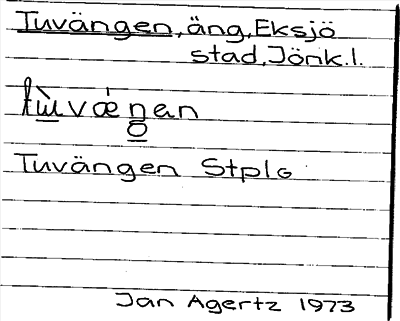 Tuvängen, äng, Eksjö
stad, Jönk.l.
Tuvängen Stplg
Jan Agertz 1973